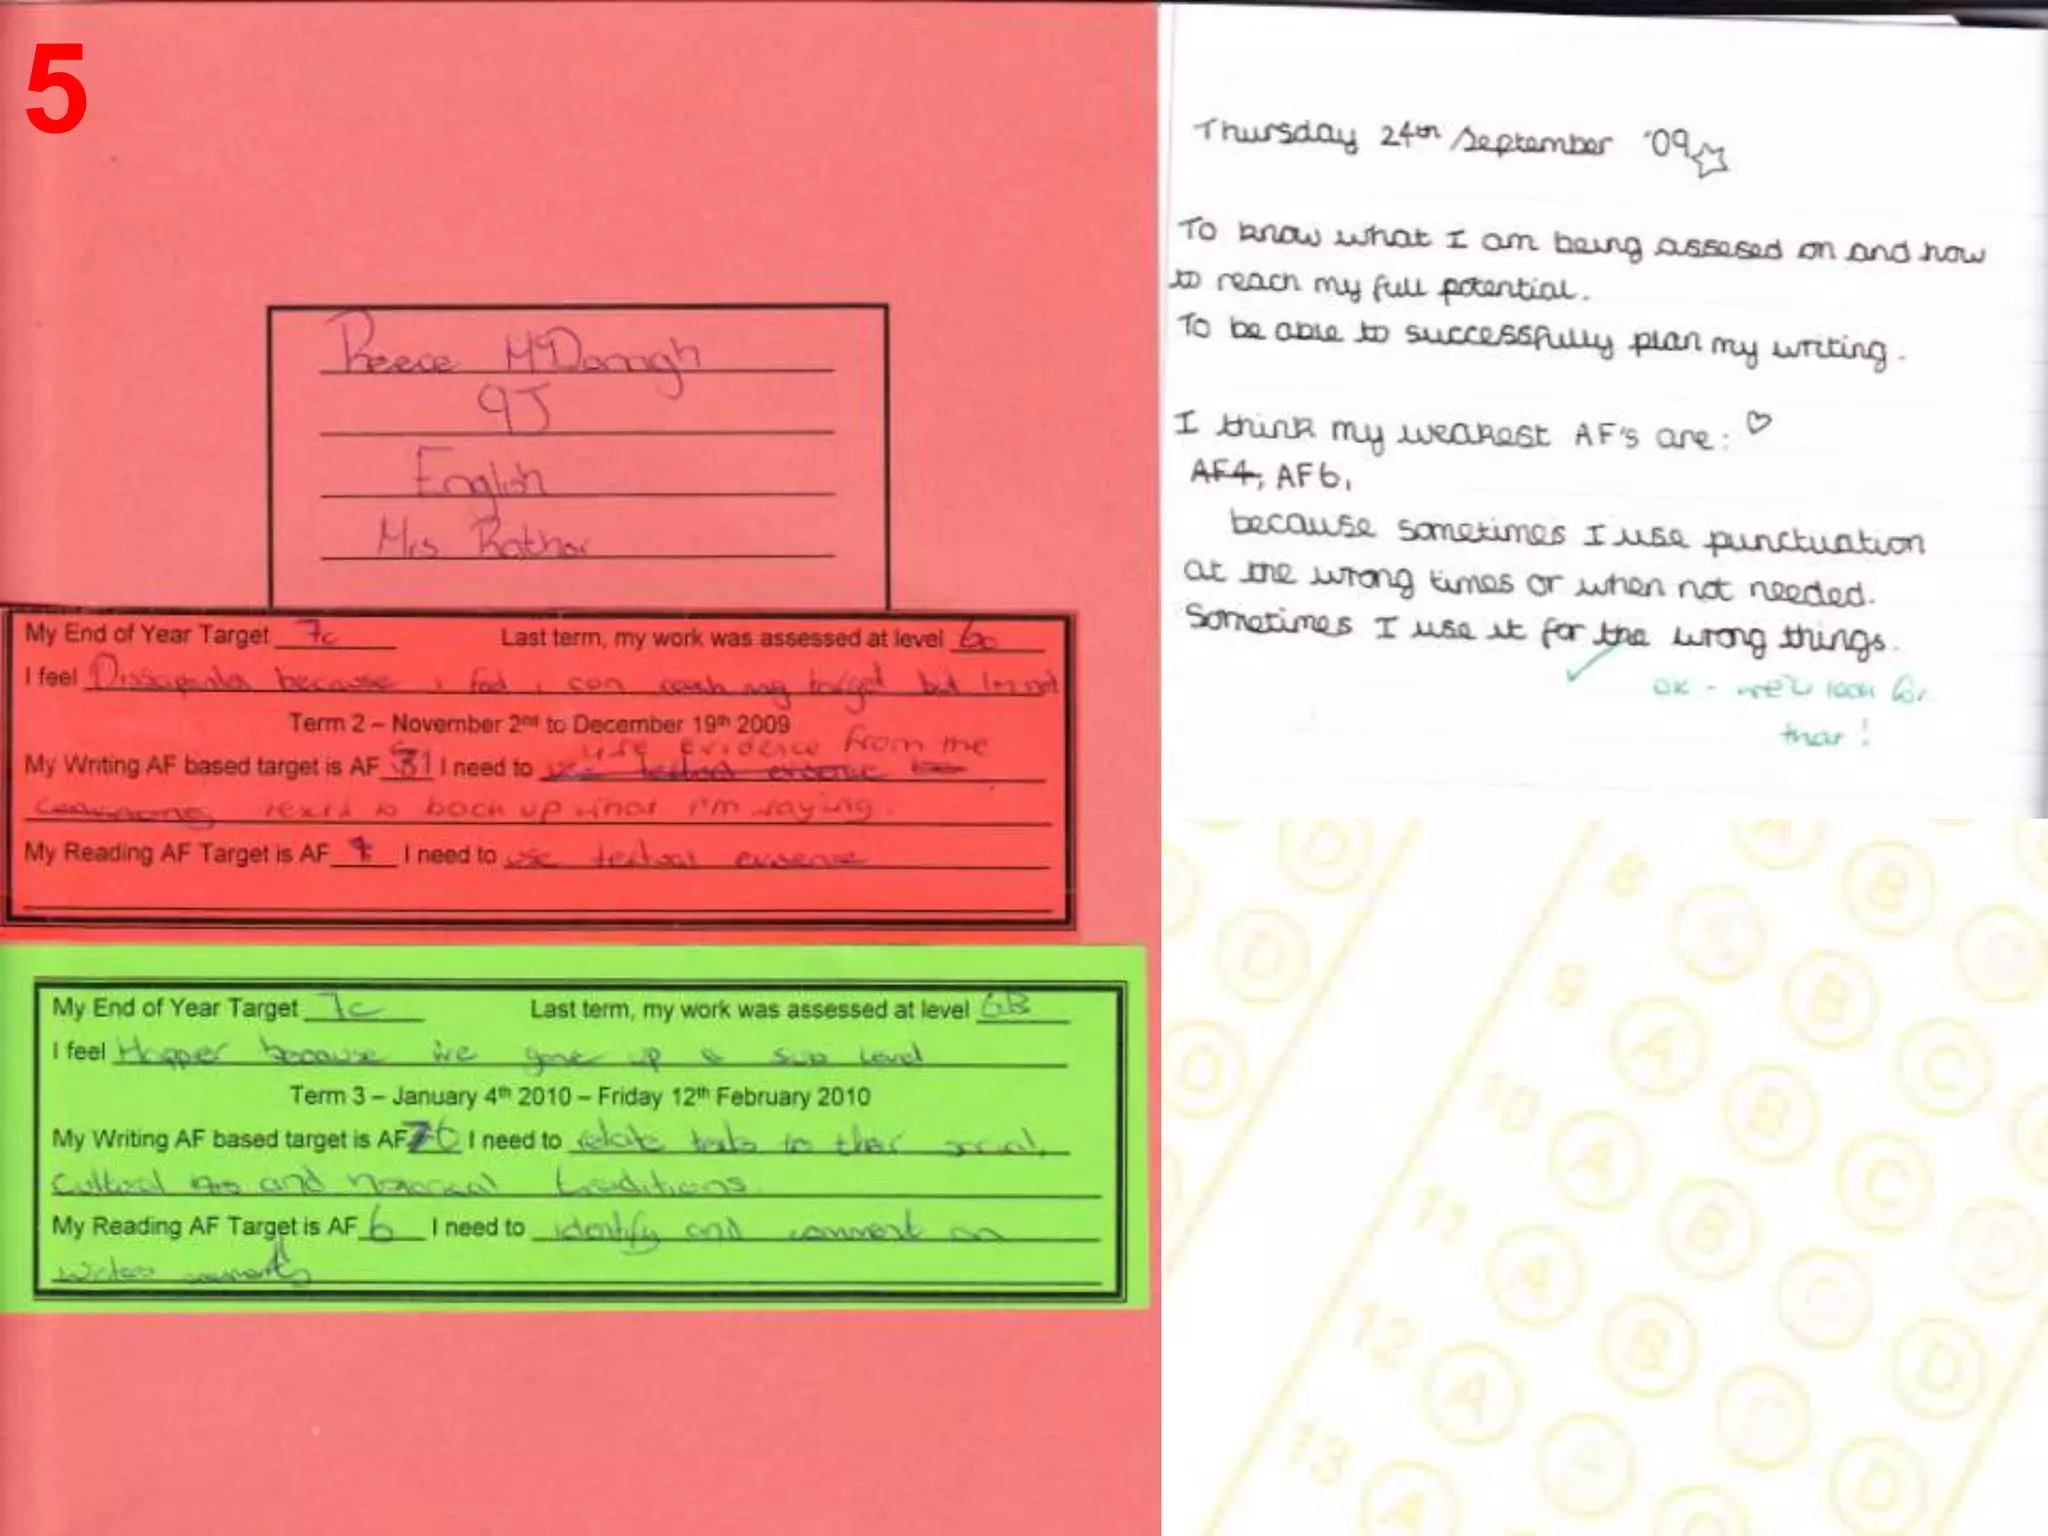 5
Reece McDonagh
9J
English
Mrs
My End of Year Target 7c Last term, my work was assessed at level
I feel because i can reach my target but Im not
Term 2 – November 2nd to December 19th 2009
use evidence from the
My Writing AF based target is AF I need to
texts to back up what I'm saying.
My Reading AF Target is AF I need to use textual evidence
My End of Year Target 7c Last term, my work was assessed at level 6B
I feel Happier because ive gone up a sub level
Term 3 – January 4th 2010 – Friday 12th February 2010
My Writing AF based target is AF I need to relate texts to their social,
Cultural and traditions.
My Reading AF Target is AF 6 I need to identify and comment on
Thursday 24th September '09
To know what I am being assesed on and how
to reach my full potential.
To be able to successfully plan my writing.
I think my weakest AF's are:
AF4, AF6,
because sometimes I use punctuation
at the wrong times or when not needed.
Sometimes I use it for the wrong things.
OK - we'll look for
that!
8 A B
9 A B C
10 A B C
11 A B C D
12 A B C D
13 A